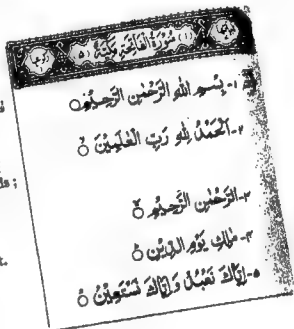 سُوْرَةُ الْفَاتِحَةِ مَكِّيَّةٌ (۱) (۵)
۱-بِسْمِ اللّٰهِ الرَّحْمٰنِ الرَّحِيْمِ
۲-اَلْحَمْدُ لِلّٰهِ رَبِّ الْعٰلَمِيْنَ
۳-الرَّحْمٰنِ الرَّحِيْمِ
۴-مٰلِكِ يَوْمِ الدِّيْنِ
۵-اِيَّاكَ نَعْبُدُ وَاِيَّاكَ نَسْتَعِيْنُ